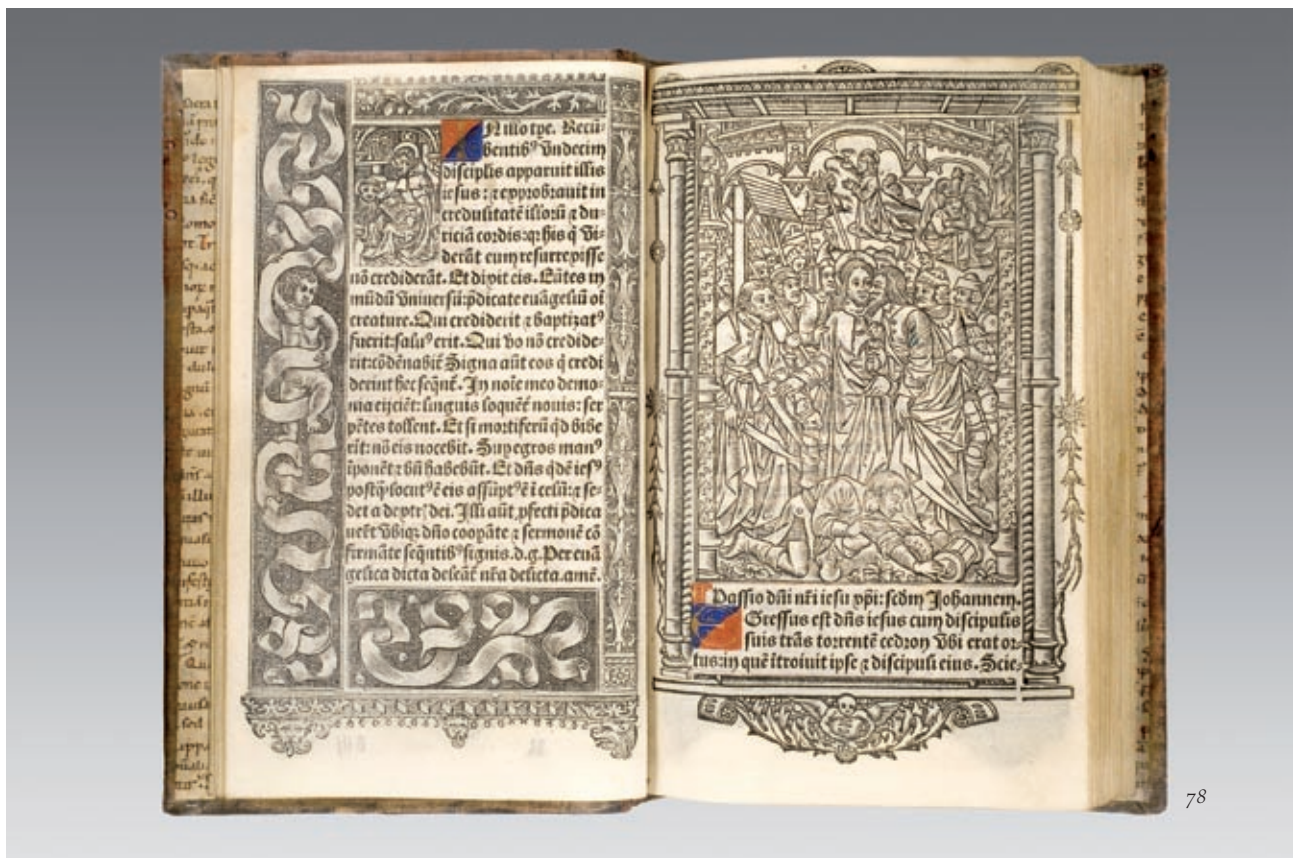 N illo tpe. Recū-
bentibꝰ vndecim
disciplis apparuit illis
iesus: ⁊ exprobrauit in
credulitatē illorū ⁊ du-
riciā cordis: qꝛ his q̄ vi-
derāt eum resurrexisse
nō crediderāt. Et dixit eis. Eūtes in
mūdū vniuersū: p̄dicate euāgeliū oī
creature. Qui crediderit ⁊ baptizatꝰ
fuerit: saluꝰ erit. Qui vo nō credide-
rit: cōdēnabit̄ Signa aūt eos q̄ credi
derint hec seqn̄t. In noīe meo demo-
nia eijciēt: linguis loquēt̄ nouis: ser
pētes tollent. Et si mortiferū qd bibe
rit: nō eis nocebit. Sup egros manꝰ
īponēt ⁊ bn̄ habebūt. Et dn̄s qdē iesꝰ
postq̄ locutꝰ ē eis assūptꝰ ē ī celū: ⁊ se-
det a dextr̄ dei. Illi aūt ꝓfecti p̄dica
uer̄t vbiqꝫ dn̄o coopāte ⁊ sermonē cō
firmāte seqn̄tibꝰ signis. d. g. Per euā
gelica dicta deleāt̄ nr̄a delicta. amē.
Passio dn̄i nr̄i iesu xp̄i: scdm Johannem.
Gressus est dn̄s iesus cum discipulis
suis trās torrentē cedron vbi erat or-
tus: in quē ītroiuit ipse ⁊ discipuli eius. Scie-
78